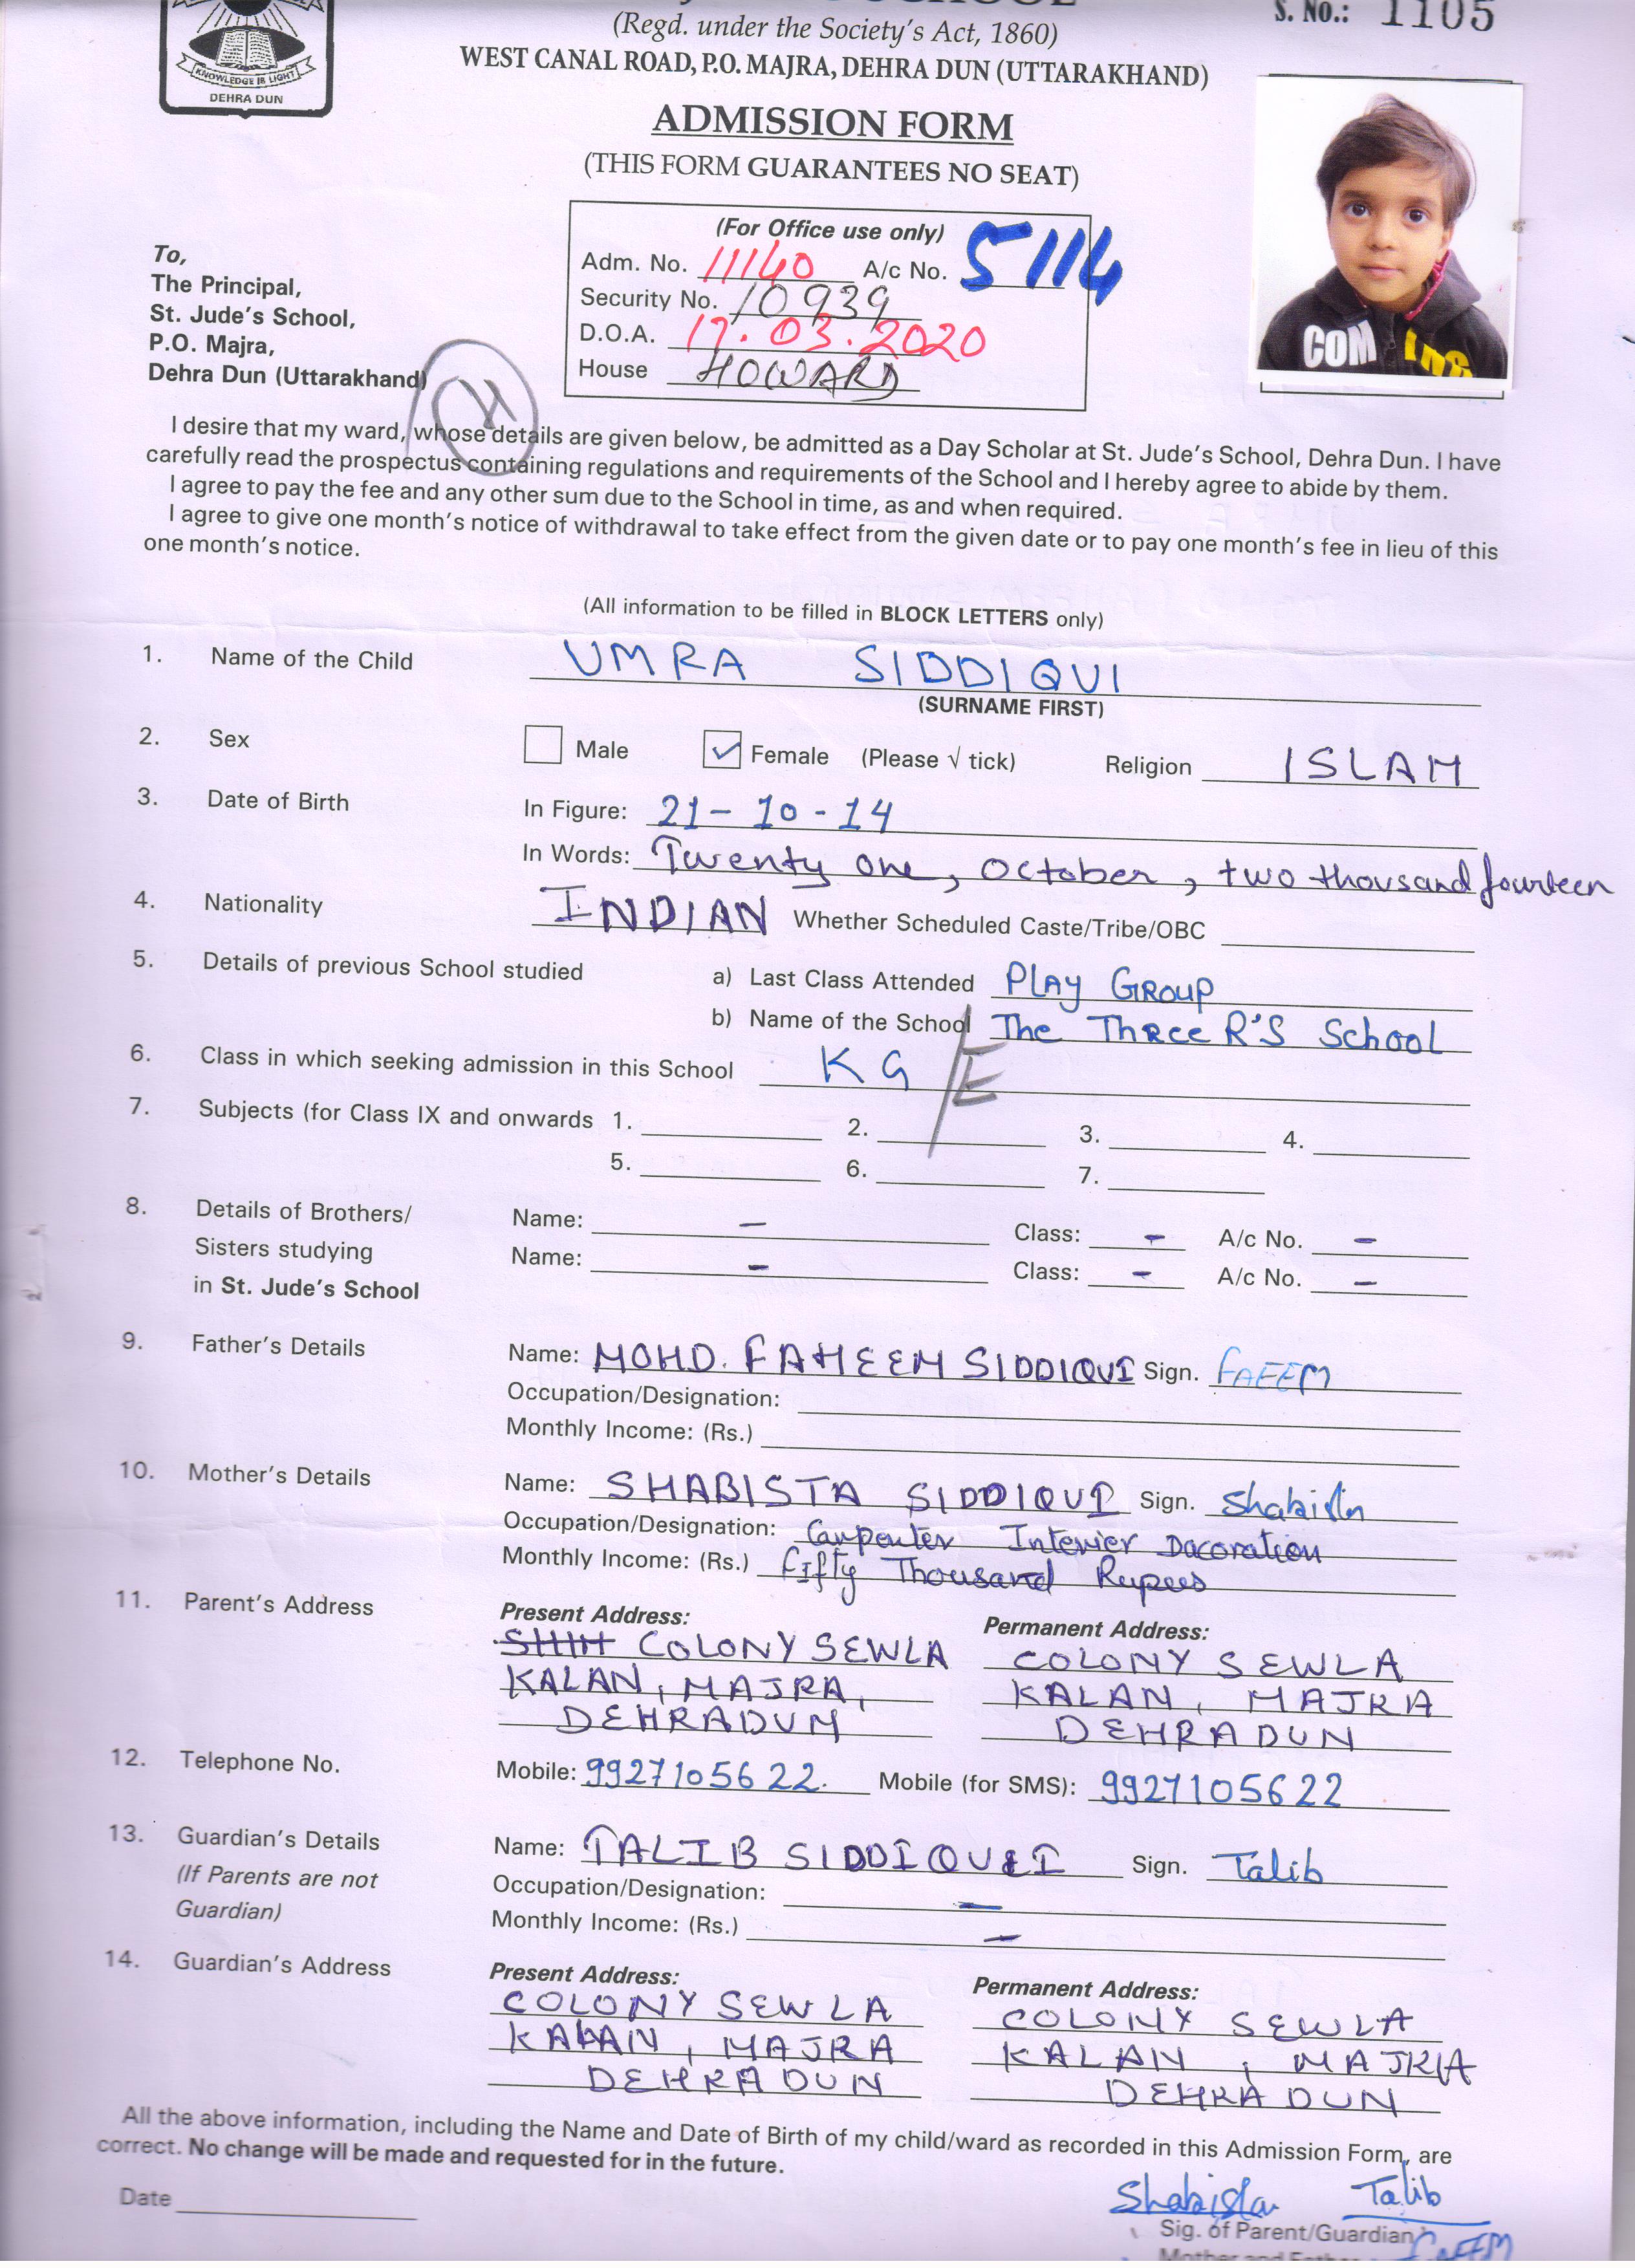 S. No.: 1105
(Regd. under the Society's Act, 1860)
WEST CANAL ROAD, P.O. MAJRA, DEHRA DUN (UTTARAKHAND)
KNOWLEDGE IS LIGHT
DEHRA DUN
ADMISSION FORM
(THIS FORM GUARANTEES NO SEAT)
(For Office use only)
Adm. No. 11140 A/c No. 5114
Security No. 10939
D.O.A. 17.03.2020
House HOWARD
To,
The Principal,
St. Jude's School,
P.O. Majra,
Dehra Dun (Uttarakhand)
H
COM
I desire that my ward, whose details are given below, be admitted as a Day Scholar at St. Jude's School, Dehra Dun. I have
carefully read the prospectus containing regulations and requirements of the School and I hereby agree to abide by them.
I agree to pay the fee and any other sum due to the School in time, as and when required.
I agree to give one month's notice of withdrawal to take effect from the given date or to pay one month's fee in lieu of this
one month's notice.
(All information to be filled in BLOCK LETTERS only)
1. Name of the Child UMRA SIDDIQUI
(SURNAME FIRST)
2. Sex Male ✓ Female (Please √ tick) Religion ISLAM
3. Date of Birth In Figure: 21-10-14
In Words: Twenty one, October, two thousand fourteen
4. Nationality INDIAN Whether Scheduled Caste/Tribe/OBC
5. Details of previous School studied a) Last Class Attended Play Group
b) Name of the School The Three R'S School
6. Class in which seeking admission in this School KG /E
7. Subjects (for Class IX and onwards 1. 2. 3. 4.
5. 6. 7.
8. Details of Brothers/ Name: - Class: - A/c No. -
Sisters studying Name: - Class: - A/c No. -
in St. Jude's School
9. Father's Details Name: MOHD. FAHEEM SIDDIQUI Sign. FAEEM
Occupation/Designation:
Monthly Income: (Rs.)
10. Mother's Details Name: SHABISTA SIDDIQUI Sign. Shabista
Occupation/Designation: Carpenter Interier Dacoration
Monthly Income: (Rs.) Fifty Thousand Rupees
11. Parent's Address Present Address: Permanent Address:
COLONY SEWLA COLONY SEWLA
KALAN, MAJRA, KALAN, MAJRA
DEHRADUN DEHRADUN
12. Telephone No. Mobile: 9927105622. Mobile (for SMS): 9927105622
13. Guardian's Details Name: TALIB SIDDIQUI Sign. Talib
(If Parents are not Occupation/Designation: -
Guardian) Monthly Income: (Rs.) -
14. Guardian's Address Present Address: Permanent Address:
COLONY SEWLA COLONY SEWLA
KALAN, MAJRA KALAN, MAJRA
DEHRADUN DEHRADUN
All the above information, including the Name and Date of Birth of my child/ward as recorded in this Admission Form, are
correct. No change will be made and requested for in the future.
Date
Shabista Talib
Sig. of Parent/Guardian
FAEEM